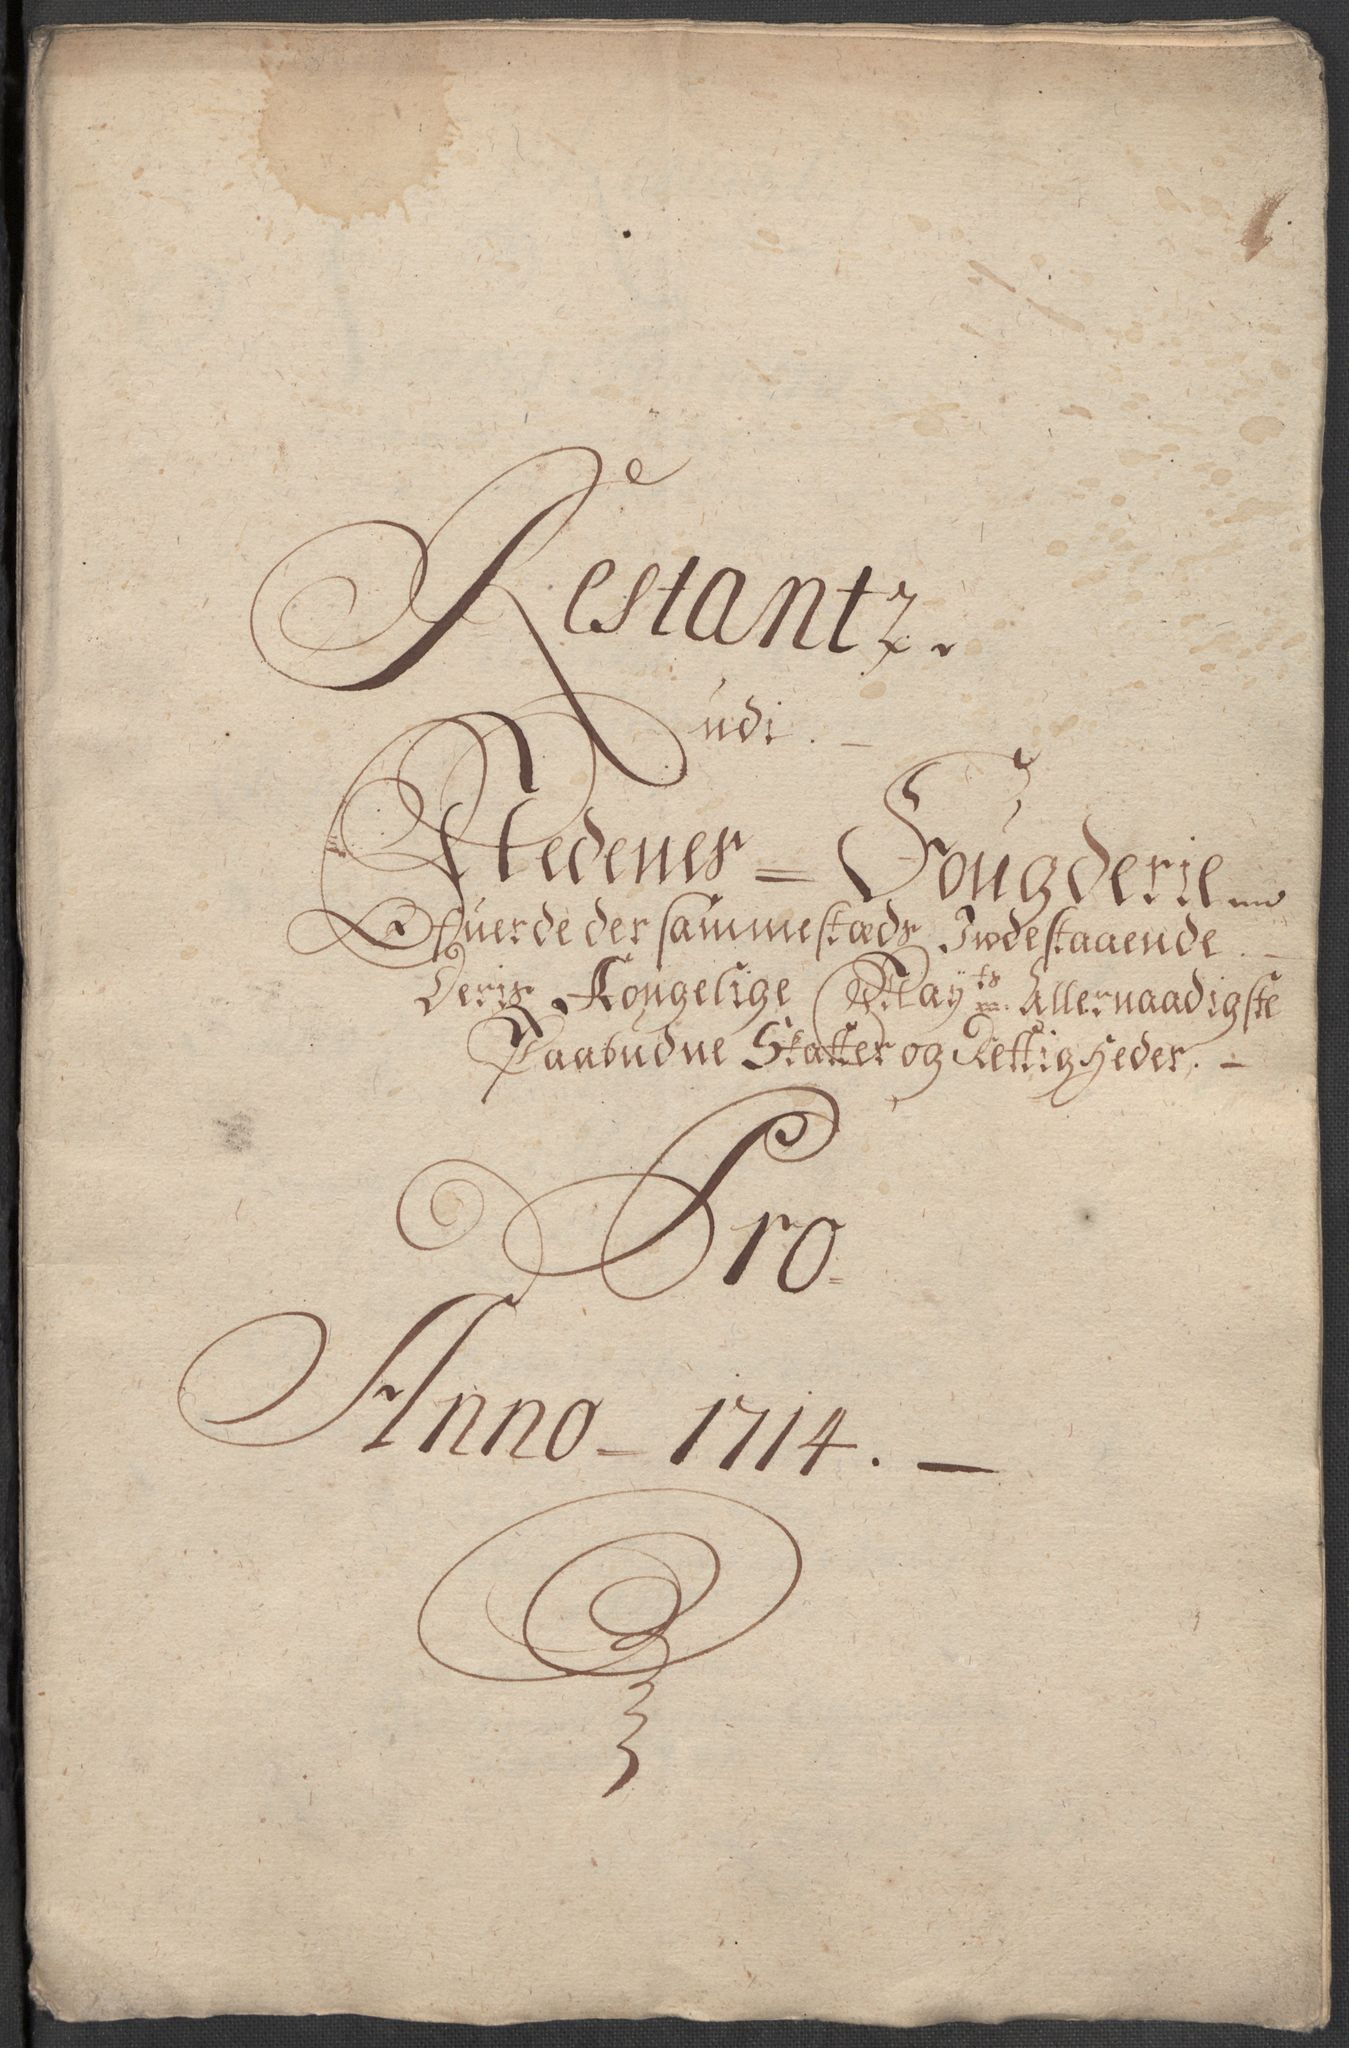 Restantz.
udi. –
Nedenes = Fougderie
Ofuer de der sammestæds Indestaaende. –
Deris Kongelige Mayts Allernaadigste
Paabudne Skatter og Rettigheder. –
Pro
Anno – 1714. –